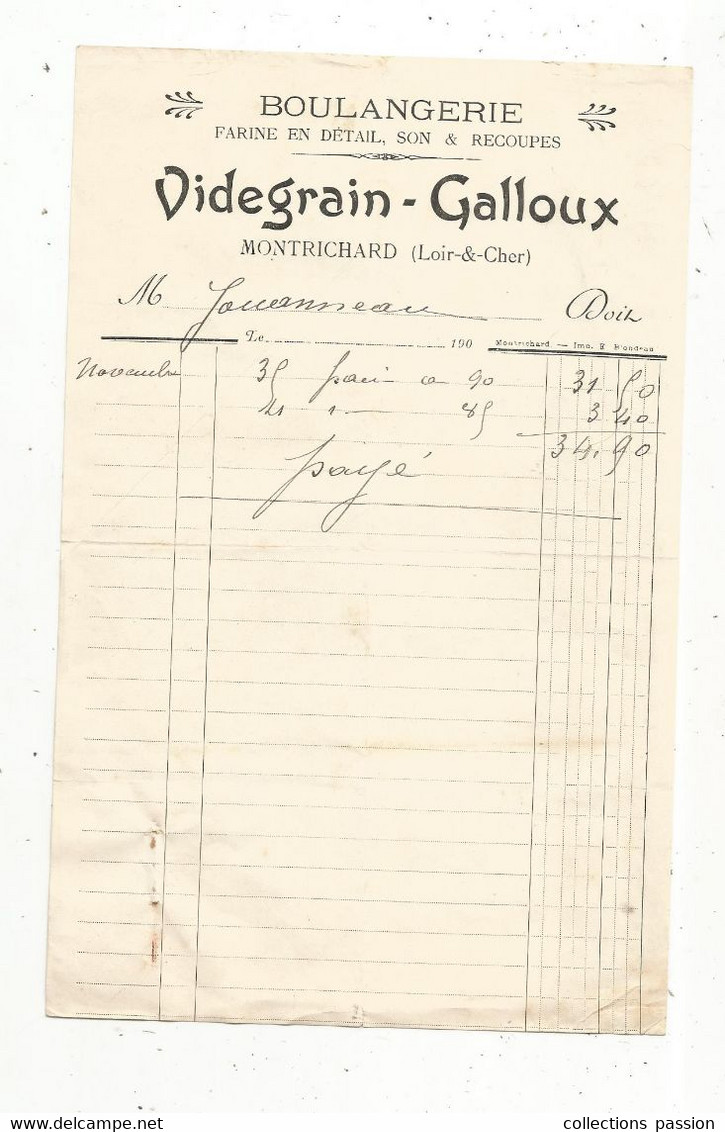 BOULANGERIE
FARINE EN DÉTAIL, SON & RECOUPES
Videgrain - Galloux
MONTRICHARD (Loir-&-Cher)
M Jouanneau Doit
Le 190 Montrichard. — Imp. E. Blondeau
Novembre 35 pain a 90 31 50
4 1 — 85 3 40
34,90
payé
collections passion